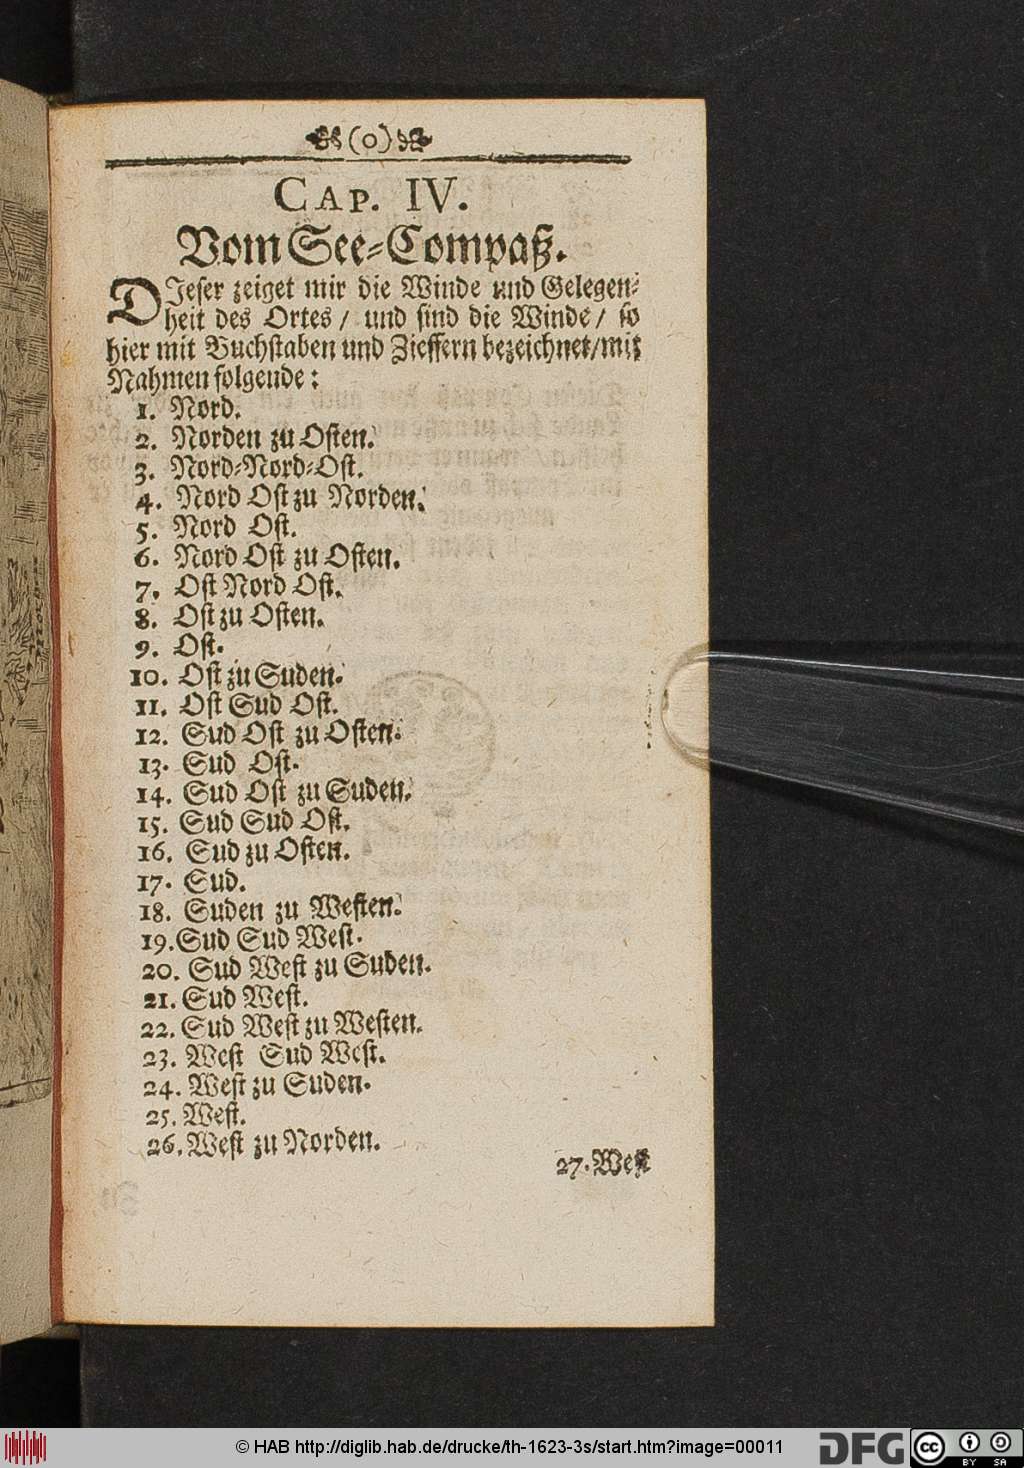 (0)
CAP. IV.
Vom See-Compaß.
DJeser zeiget mir die Winde und Gelegen-
heit des Ortes / und sind die Winde / so
hier mit Buchstaben und Zieffern bezeichnet/mit
Nahmen folgende:
1. Nord.
2. Norden zu Osten.
3. Nord-Nord-Ost.
4. Nord Ost zu Norden.
5. Nord Ost.
6. Nord Ost zu Osten.
7. Ost Nord Ost.
8. Ost zu Osten.
9. Ost.
10. Ost zu Suden.
11. Ost Sud Ost.
12. Sud Ost zu Osten.
13. Sud Ost.
14. Sud Ost zu Suden.
15. Sud Sud Ost.
16. Sud zu Osten.
17. Sud.
18. Suden zu Westen.
19. Sud Sud West.
20. Sud West zu Suden.
21. Sud West.
22. Sud West zu Westen.
23. West Sud West.
24. West zu Suden.
25. West.
26. West zu Norden.
27. West
© HAB http://diglib.hab.de/drucke/th-1623-3s/start.htm?image=00011
DFG
cc BY SA